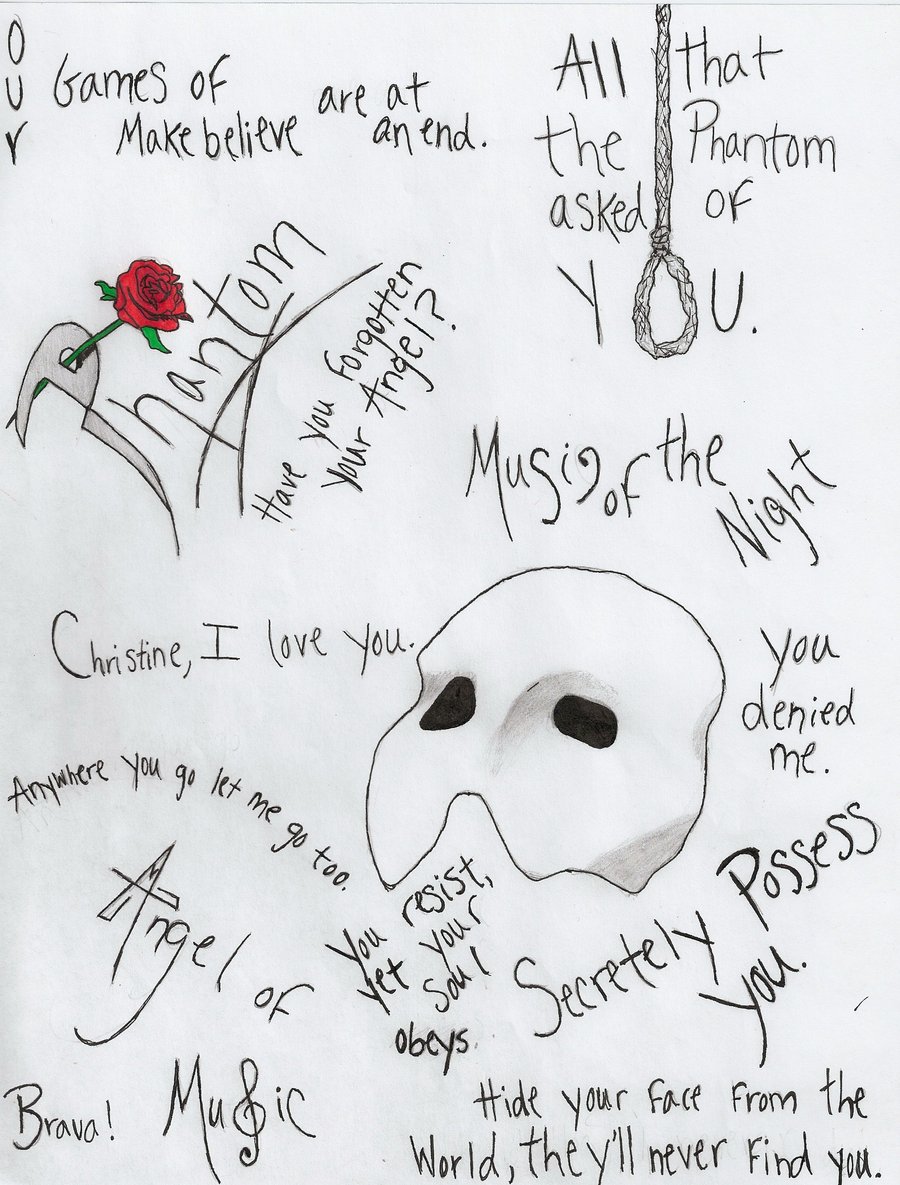 Our
Games of
Make believe
are at
an end.
All that
the Phantom
asked of
YOU.
Phantom
Have you forgotten
your Angel?
Music of the
Night
Christine, I love you.
You
denied
me.
Anywhere you go let me go too.
Angel of
Music
You resist,
yet your
soul
obeys.
Secretely Possess
you.
Brava!
Hide your face from the
World, they'll never find you.